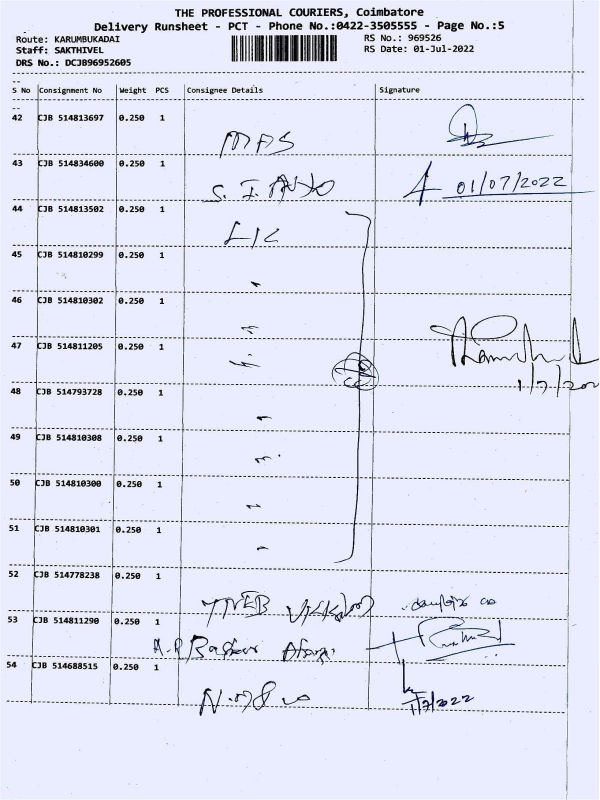 THE PROFESSIONAL COURIERS, Coimbatore
Delivery Runsheet - PCT - Phone No.:0422-3505555 - Page No.:5
Route: KARUMBUKADAI RS No.: 969526
Staff: SAKTHIVEL RS Date: 01-Jul-2022
DRS No.: DCJB96952605
S No Consignment No Weight PCS Consignee Details Signature
42 CJB 514813697 0.250 1
MPS
43 CJB 514834600 0.250 1
S. I. Auto 01/07/2022
44 CJB 514813502 0.250 1
LIC
45 CJB 514810299 0.250 1
46 CJB 514810302 0.250 1
47 CJB 514811205 0.250 1
48 CJB 514793728 0.250 1
49 CJB 514810308 0.250 1
50 CJB 514810300 0.250 1
51 CJB 514810301 0.250 1
52 CJB 514778238 0.250 1
TNEB
53 CJB 514811290 0.250 1
A.R
54 CJB 514688515 0.250 1
1/7/2022